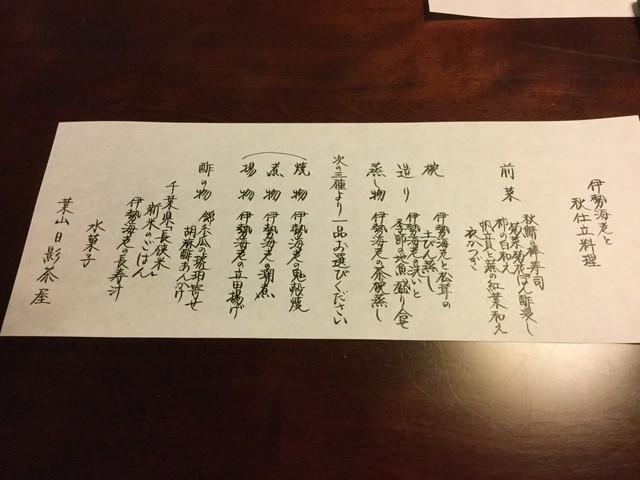 伊勢海老と
秋仕立料理
前菜
秋鯖の棒寿司
菊菜菊花ぽん酢浸し
柿の白和え
帆立と蕪の紅葉和え
衣かつぎ
椀 伊勢海老と松茸の
土びん蒸し
造り 伊勢海老の洗いと
季節の地魚盛り合せ
蒸し物 伊勢海老の茶碗蒸し
次の三種より一品お選びください
焼物 伊勢海老の鬼殻焼
煮物 伊勢海老の潮煮
揚物 伊勢海老の立田揚げ
酢の物 錦糸瓜の琥珀寄せ
胡麻酢あんかけ
千葉県「長狭米」
新米のごはん
伊勢海老の長寿汁
水菓子
葉山日影茶屋